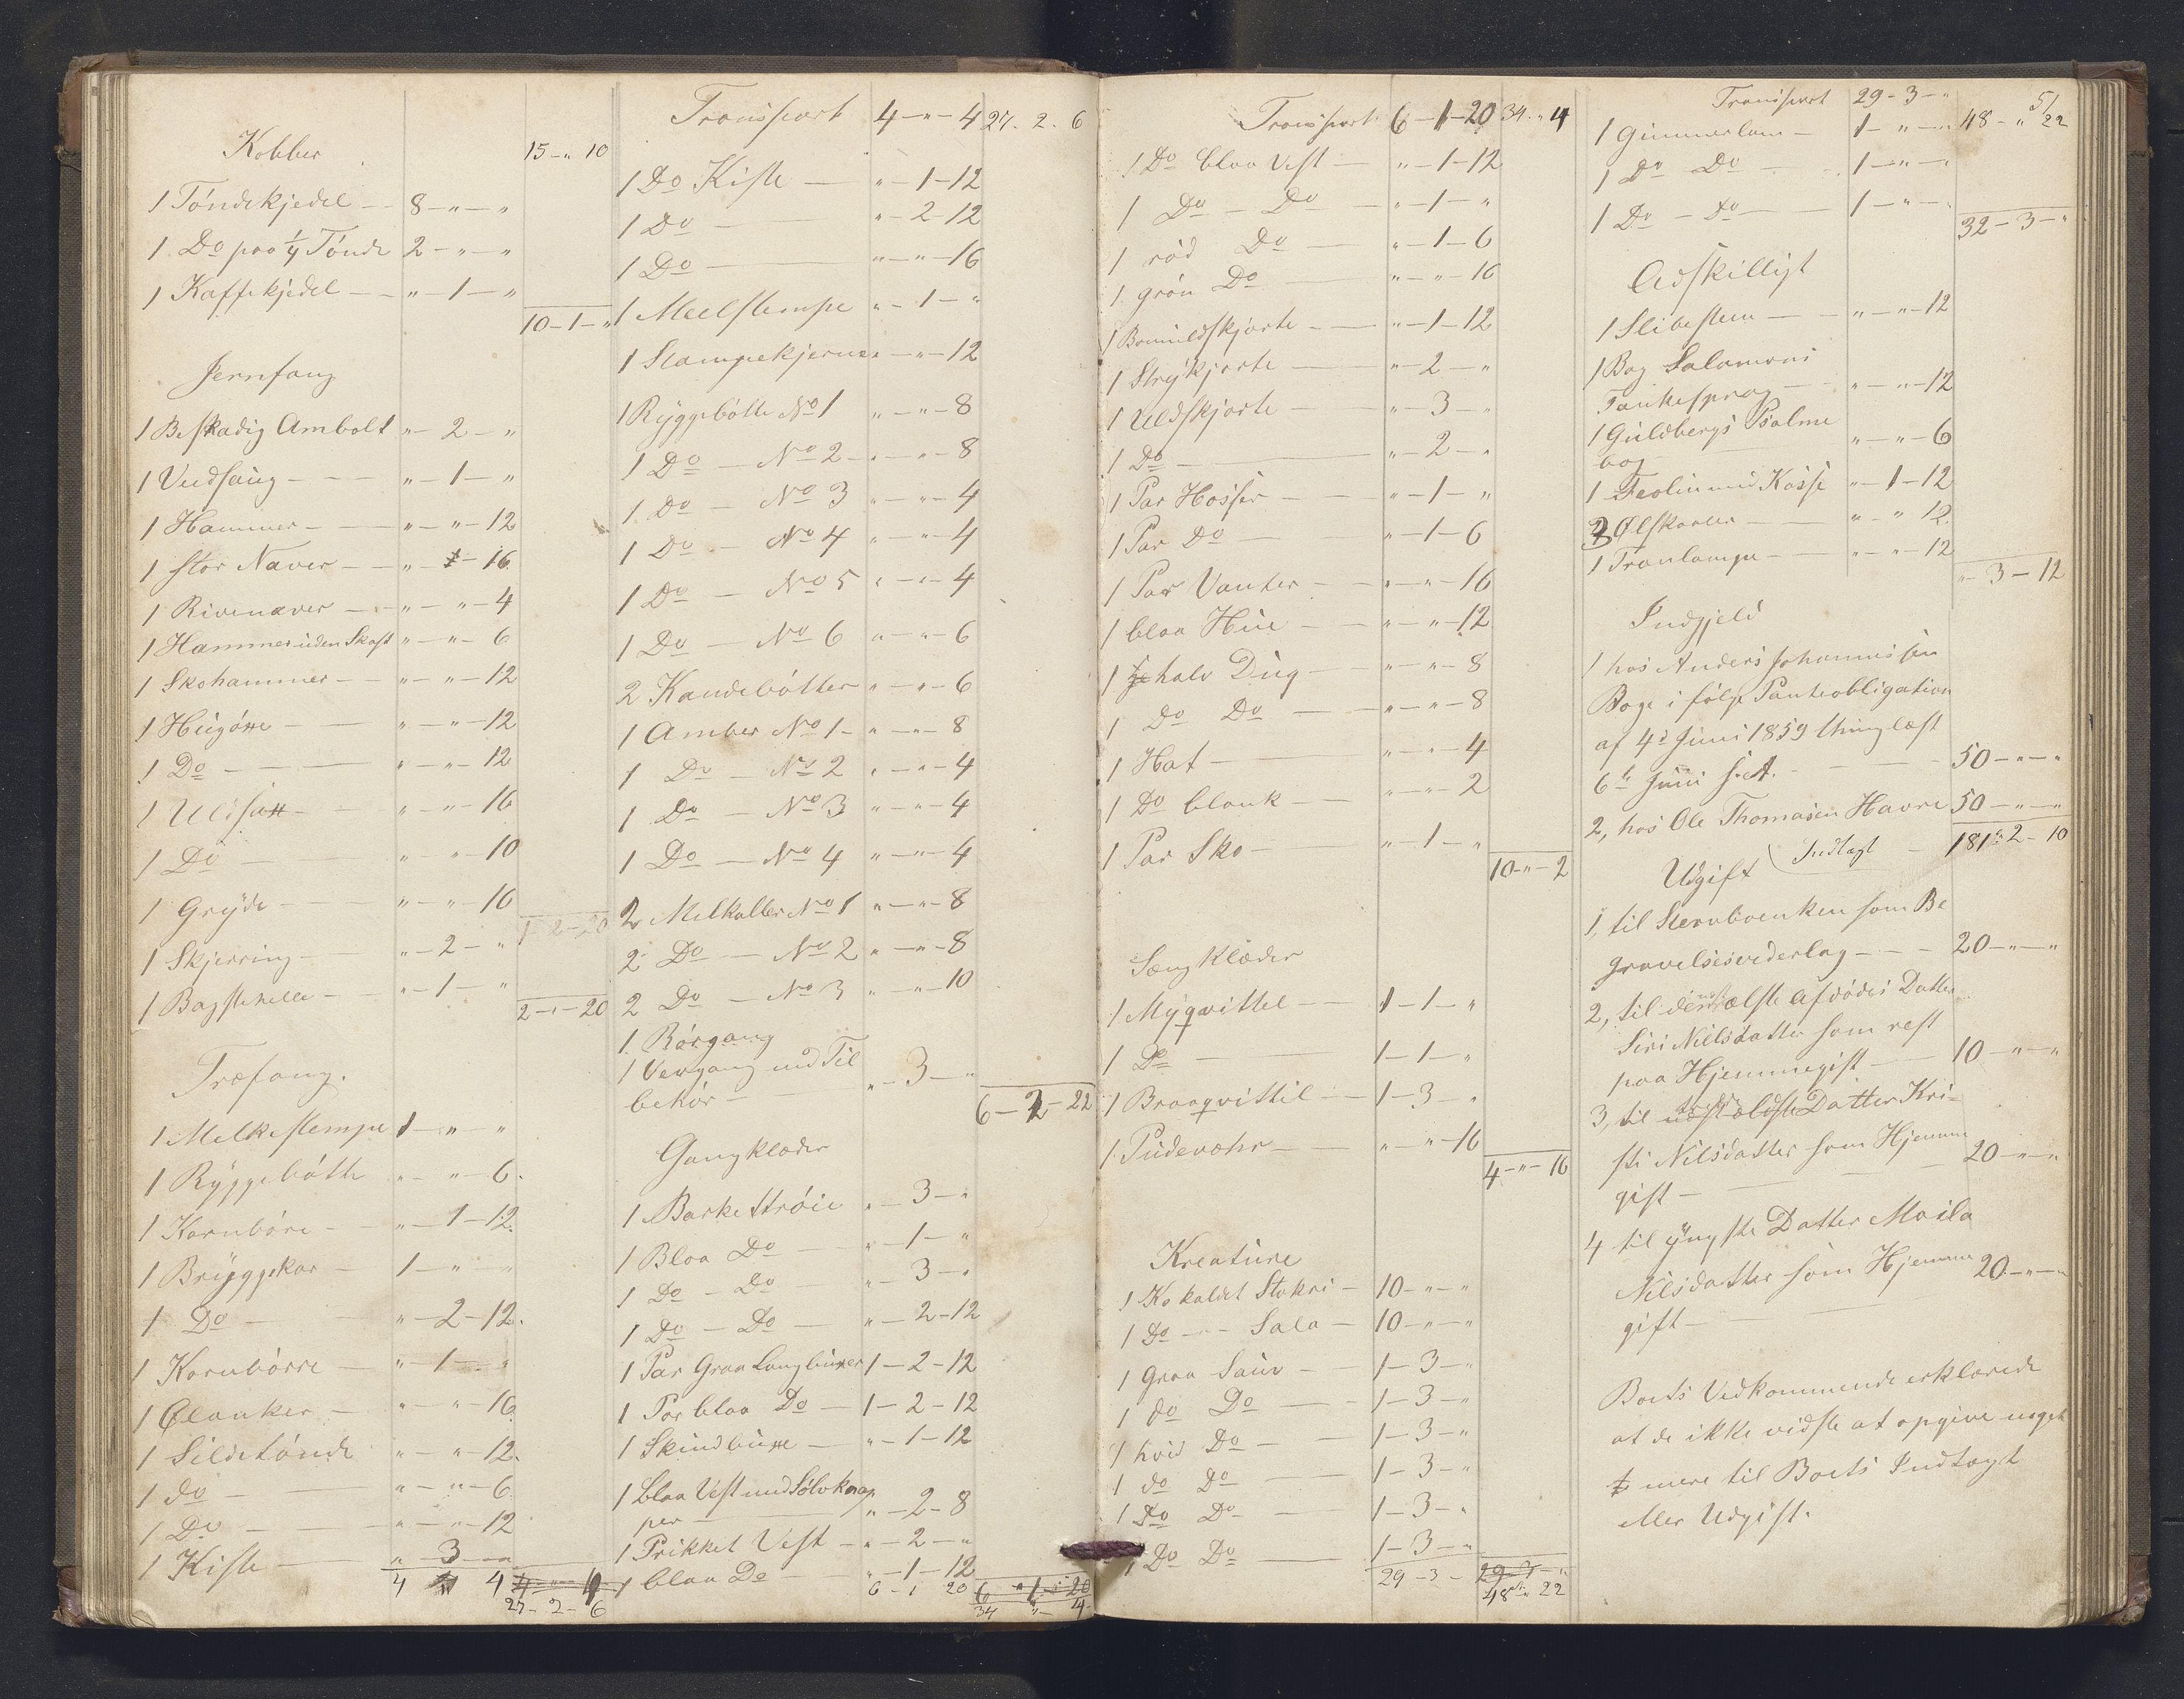 15 - " 10
Kobber
1 Töndekjedel - 8 - " - "
1 Do paa 1/4 Tönde 2 - " - "
1 Kaffekjedel - " - 1 - "
10 - 1 - "
Jernfang
1 Beskadig Ambolt " - 2 - "
1 Vedsaug - " - 1 - "
1 Hammer - " - " - 12
1 stor Naver - " - 16
1 Rivenaver - " - " - 4
1 Hammer uden Skaft " - " - 6
1 Skohammer - " - " - 12
1 Hugöxe - " - " - 12
1 Do - " - " - 12
1 Uldsax - " - " - 16
1 Do " - " - 10
1 Gryde - " - " - 16
1 - 2 - 20
1 Skjerring - " - 2 - "
1 Bagstehelle - " - 1 - "
2 - " - 20
Træfang.
1 Melkestempe 1 - " - "
1 Ryggebötte " - " - 6
1 Kornböre - " - 1 - 12
1 Bryggekar - 1 - " - "
1 Do - " - 2 - 12
1 Kornbörre - " - 1 - "
1 Ølanker - " - " - 16
1 Sildetönde " - " - 12
1 do - " - " - 6
1 Do - " - " - 12
1 Kiste - " - 3 - "
4 " 4 4 - " - 4
27 - 2 - 6
Transport 4 - " - 4 27. 2. 6
1 Do Kiste - " - 1 - 12
1 Do - " - 2 - 12
1 Do - " - " - 16
1 Meelstempe " - 1 - "
1 Stampekjerne " - " - 12
1 Ryggebötte No 1 " - " - 8
1 Do - No 2 - " - " - 8
1 Do - No 3 " - " - 4
1 Do - No 4 " - " - 4
1 Do - No 5 " - " - 4
1 Do - No 6 " - " - 6
2 Kandebötter " - " - 6
1 Amber No 1 - " - " - 8
1 Do - No 2 " - " - 4
1 Do - No 3 " - " - 4
1 Do - No 4 " - " - 4
2 Melkoller No 1 " - " - 8
2 Do - No 2 " - " - 8
2 Do - No 3 " - " - 10
1 Rörgang
1 Vevgang med Til
behör - " - 3 - "
6 - 2 - 22
Gangklæder
1 Barkettröie " - 3 - "
1 Blaa Do - " - 1 - "
1 Do - Do " - 3 - "
1 Do - Do - " - 2 - 12
1 Par Graa Langbuxer 1 - 2 - 12
1 Par blaa Do - 1 - 2 - 12
1 Skindbuxe - " - 1 - 12
1 blaa Vest med Sölvknap
per " - 2 - 8
1 Prikket Vest - " - 2 - "
1 blaa Do " - 1 - 12
6 - 1 20 6 " 1 - 20
34 " - 4
Transport 6 - 1 - 20 34. " 4
1 Do blaa Vest - " - 1 - 12
1 Do - Do - " - 1 - "
1 röd Do - " - 1 - 6
1 grön Do - " - " - 16
1 Bomuldskjorte - " - 1 - 12
1 Strýkjorte - " - 2 - "
1 Uldskjorte - " - 3 - "
1 Do - " - 2 - "
1 Par Hosser - " - 1 - "
1 Par Do - " - 1 - 6
1 Par Vanter - " - " - 16
1 blaa Hue - " - " - 12
1 halv Dug - " - " - 8
1 Do Do - " - " - 8
1 Hat - " - " - 4
1 Do blank - " - " - 2
1 Par Sko - " - 1 - "
10 - " - 2
Sængklæder
1 Myqvittel - 1 - 1 - "
1 Do - 1 - 1 - "
1 Braaqvittil - 1 - 3 - "
1 Pudevahr - " - " - 16
4 - " - 16
Kreature
1 Ko kaldet Stokri - 10 - " - "
1 Do - Sala - 10 - " - "
1 graa Sauv - 1 - 3 - "
1 do Do - 1 - 3 - "
1 hvid Do - 1 - 3 - "
1 do Do - 1 - 3 - "
1 Do Do - 1 - 3 - "
1 Do Do - 1 - 3 - "
29 - 3 - 29 - 3 - "
48 - " 22
51
Transport 29 - 3 - "
1 Gimmerlam - 1 - " - " 48 - " 22
1 Do Do - 1 - " - "
1 Do - Do - 1 - " - "
32 - 3 - "
Adskilligt
1 Slibesteen - " - " - 12
1 Bog Salomons
Tankesprog - " - " - 12
1 Guldbergs Psalme
bog " - " - 6
1 Feolin med Kasse " - 1 - 12
3 Ølskaaler - " - " 12
1 Tranlampe - " - " - 12
" - 3 - 12
Indgjeld
1 hos Anders Johannissen
Boge i fölge Panteobligation
af 4de Juni 1859 thinglæst
6te Juni s. A. - 50 - " - "
2, hos Ole Thomasen Havre 50 - " - "
Indtægt - 181 " 2 - 10
Udgift
1, til Stervboenken som Be
gravelsesvederlag - 20 - " - "
2, til den næstælste Afdödes Datter
Siri Nilsdatter som rest
paa Hjemmegift - 10 - " - "
3, til næstældste Datter Kri-
sti Nilsdatter som Hjemme
gift - 20 - " - "
4 til yngste Datter Maila
Nilsdatter som Hjemme
gift - 20 - " - "
Boets Vedkommende erklærede
at de ikke vidste at opgive noget
mere til Boets Indtægt
eller Udgift.